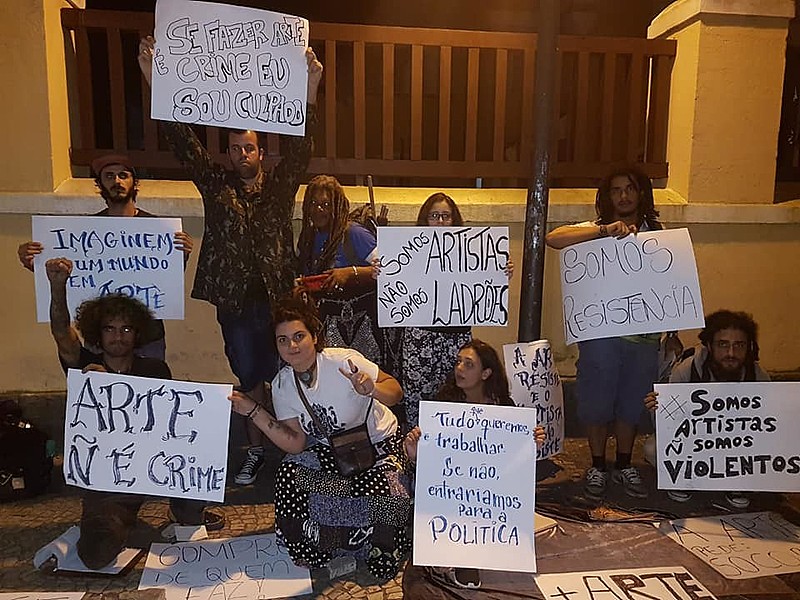 SE FAZER ARTE
É CRIME EU
SOU CULPADO
IMAGINEM
UM MUNDO
EM
ARTE
SOMOS ARTISTAS
NÃO
SOMOS LADRÕES
SOMOS
RESISTÊNCIA
ARTE
Ñ É CRIME
TuDO que QUEREMOS
é trabalhar.
Se não,
entraríamos
para a
POLÍTICA
A ARTE
RESISTE
E O
#SOMOS
ARTISTAS
Ñ SOMOS
VIOLENTOS
COMPRE
DE QUEM
FAZ!
+ ARTE
A ARTE
PEDE
SOCO